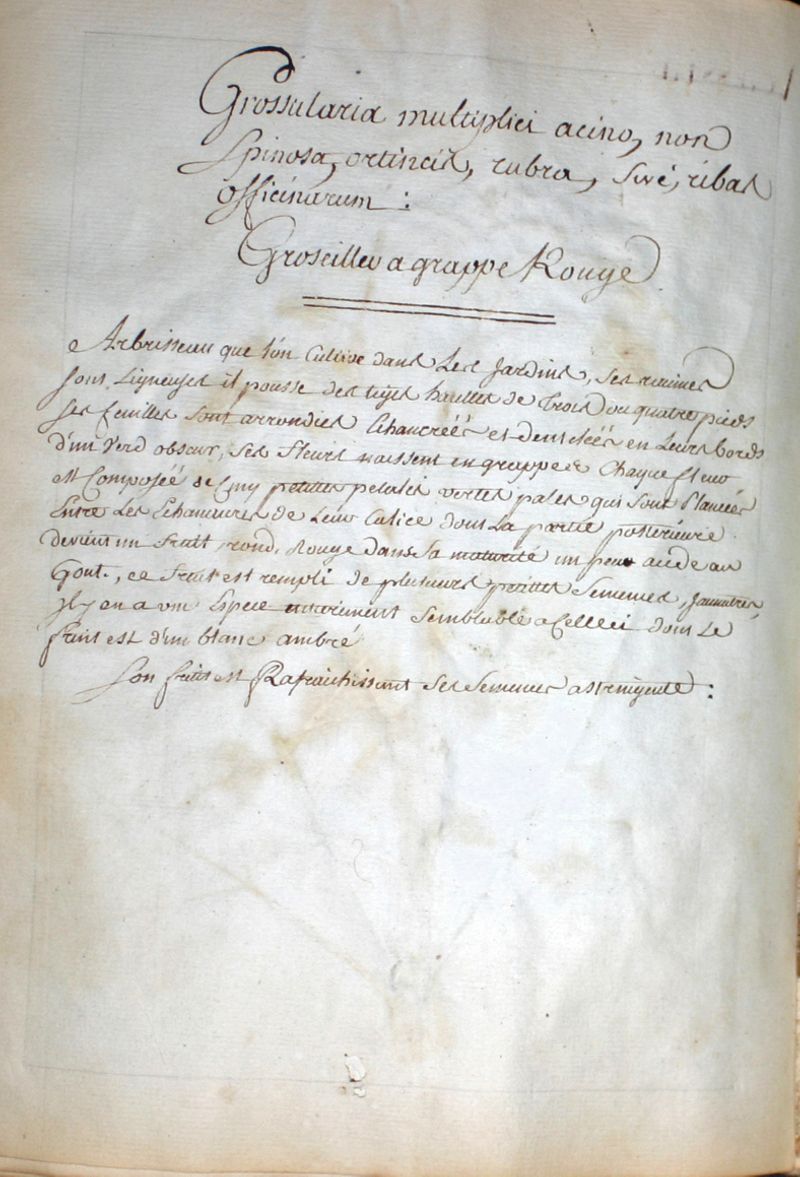 Grossularia multiplici acino, non
Spinosa, ortincis, rubra, sive, ribas
officinarum :
Groseiller a grappe Rouge
Arbrisseau que l'on Cultive dans Les Jardins, ses racines
sont Ligneuses il pousse des tiges haultes de trois ou quatre pieds
ses feuilles sont arrondies Echancréés et denteléés en Leurs bords
d'un Verd obscur, ses fleurs naissent en grappes Chaque fleur
est Composéé de Cinq petittes petales vertes pales qui sont Placéés
Entre Les Echancrures de Leur Calice dont La partie posterieure
devient un fruit, rond, Rouge dans sa maturité un peu acide au
Gout, ce fruit est rempli de plusieurs petittes Semences, Jaunatres,
il y en a une Espece entierement Semblable a Celleci dont Le
fruit est d'un blanc ambré
Son fruit est Rafraichissant ses Semences astringente :